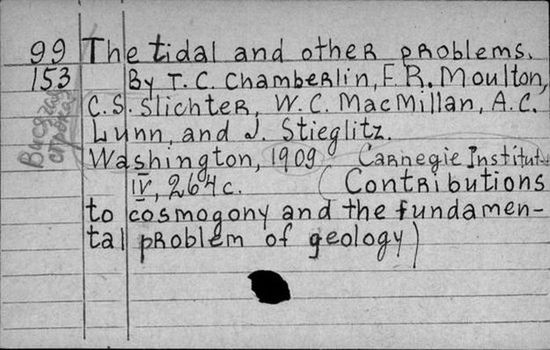 99 The tidal and other problems.
153 By T.C. Chamberlin, F.R. Moulton,
C.S. Slichter, W.C. MacMillan, A.C.
Lunn, and J. Stieglitz.
Washington, 1909 Carnegie Institut.
IV, 264 c. (Contributions
to cosmogony and the fundamen-
tal problem of geology)
Висячая
строка